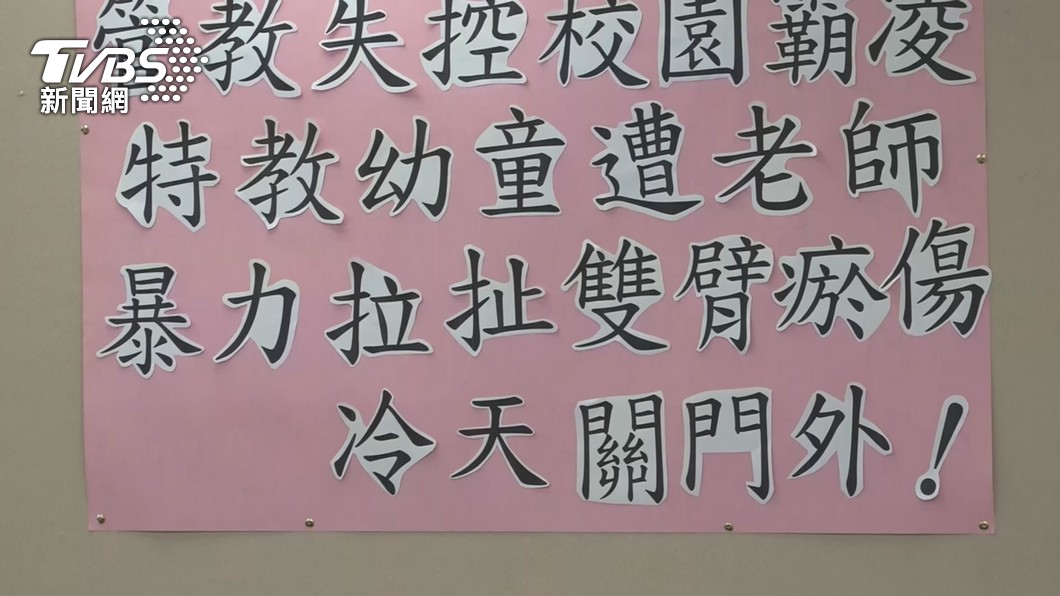 TVBS
新聞網
管教失控校園霸凌
特教幼童遭老師
暴力拉扯雙臂瘀傷
冷天關門外！